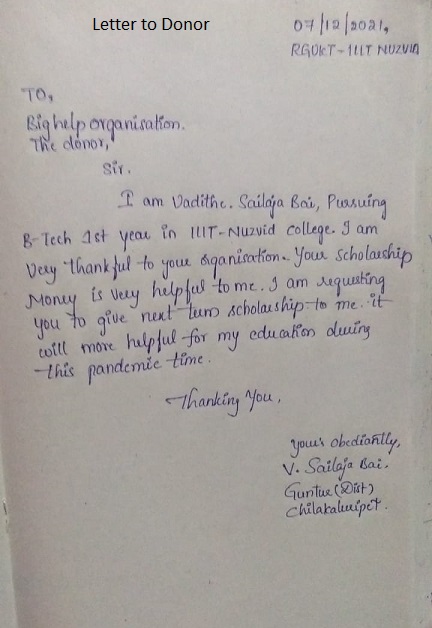 Letter to Donor
07/12/2021,
RGUKT-IIIT NUZVID
TO,
Bighelp organisation.
The donor,
Sir.
I am Vadithe. Sailaja Bai, Pursuing
B-Tech 1st year in IIIT-Nuzvid college. I am
Very thankful to your organisation. Your scholarship
Money is very helpful to me. I am requesting
you to give next turn scholarship to me. it
will more helpful for my education during
this pandemic time.
Thanking You.
your's obediantly,
V. Sailaja Bai.
Guntur (Dist)
Chilakaluripet.